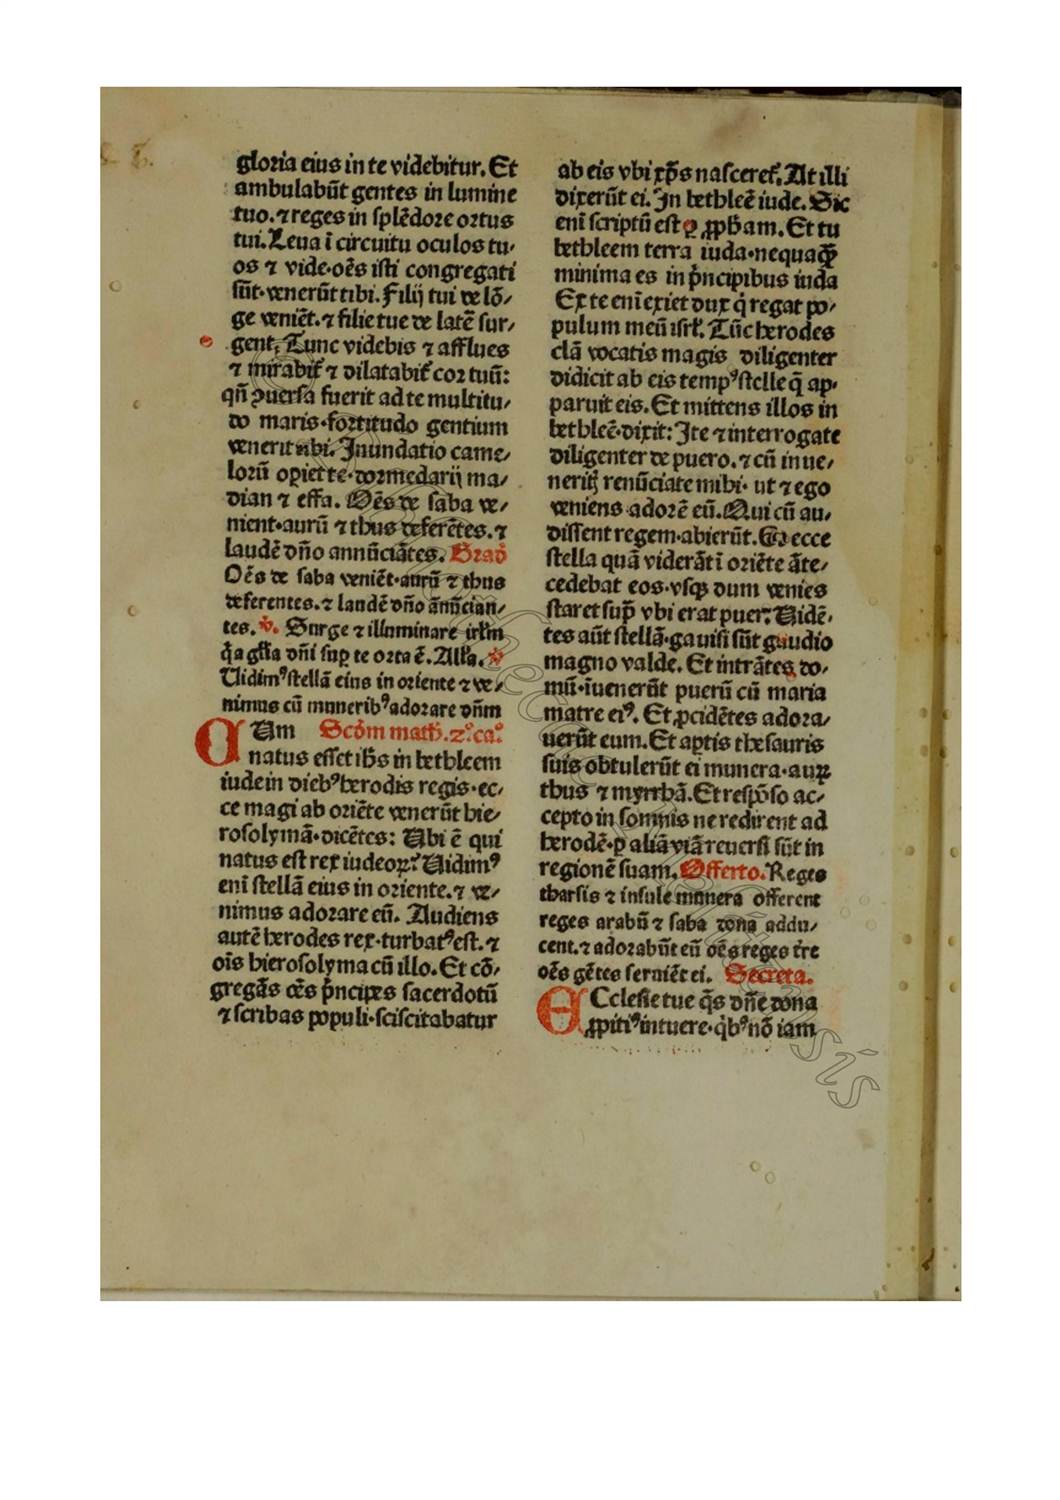 gloria eius in te videbitur. Et
ambulabūt gentes in lumine
tuo. ⁊ reges in splēdore ortus
tui. Leua ī circuitu oculos tu-
os ⁊ vide· oēs isti congregati
sūt· venerūt tibi. Filij tui de lō-
ge veniēt. ⁊ filie tue de latē sur-
gent. Tunc videbis ⁊ afflues
⁊ mirabit̉ ⁊ dilatabit̉ cor tuū:
qn̄ ꝯuersa fuerit ad te multitu-
do maris· fortitudo gentium
venerit tibi. Inundatio came-
lorū opiet te· dormedarij ma-
dian ⁊ effa. Oēs de saba ve-
nient· aurū ⁊ thus deferētes. ⁊
laudē dn̄o annūciātes. Grad̉
Oēs de saba veniēt· aurū ⁊ thus
deferentes. ⁊ laudē dn̄o ānūcian-
tes. v̉. Surge ⁊ illuminare irłm
q̄a gl̄a dn̄i suꝑ te orta ē. All̄a. v̉
Uidimꝰ stellā eius in oriente ⁊ ve-
nimus cū muneribꝰ adorare dn̄m
CUm Scd̄m math̄. 2.º ca.º
natus esset ih̄s in bethleem
iude in diebꝰ herodis regis· ec-
ce magi ab oriēte venerūt hie-
rosolymā· dicētes: Ubi ē qui
natus est rex iudeoꝝ? Uidimꝰ
eni̅ stellā eius in oriente. ⁊ ve-
nimus adorare eū. Audiens
autē herodes rex· turbatꝰ est. ⁊
oīs hierosolyma cū illo. Et cō-
gregās oēs p̄ncipes sacerdotū
⁊ scribas populi· sciscitabatur
ab eis vbi xp̄s nasceret̉. At illi
dixerūt ei. In bethleē iude. Sic
eni̅ scriptū est ꝑ ꝓph̄am. Et tu
bethleem terra iuda· nequaq̄ꝫ
minima es in p̄ncipibus iuda
Ex te eni̅ exiet dux q̇ regat po-
pulum meū isrł. Tūc herodes
clā vocatis magis diligenter
didicit ab eis tempꝰ stelle q̄ ap-
paruit eis. Et mittens illos in
bethleē· dixit: Ite ⁊ interrogate
diligenter de puero. ⁊ cū inue-
neritꝭ renūciate mihi· ut ⁊ ego
veniens adorē eū. Qui cū au-
dissent regem· abierūt. Et ecce
stella quā viderāt ī oriēte āte-
cedebat eos· vsqꝫ dum venies
staret sup̄ vbi erat puer. Uidē-
tes aūt stellā· gauisi sūt gaudio
magno valde. Et intrātes do-
mū· īuenerūt puerū cū maria
matre eiꝰ. Et ꝓcidētes adora-
uerūt eum. Et aꝑtis thesauris
suis obtulerūt ei munera· auꝝ
thus ⁊ myrrhā. Et respōso ac-
cepto in somnis ne redirent ad
herodē· ꝑ aliā viā reuersi sūt in
regionē suam. Offerto. Reges
tharsis ⁊ insule munera offerent
reges arabū ⁊ saba dona addu-
cent. ⁊ adorabūt eū oēs reges tr̄re
oēs gētes seruiēt ei. Secreta.
ECclesie tue q̄s dn̄e dona
ꝓpitiꝰ intuere· q̇bꝰ nō iam